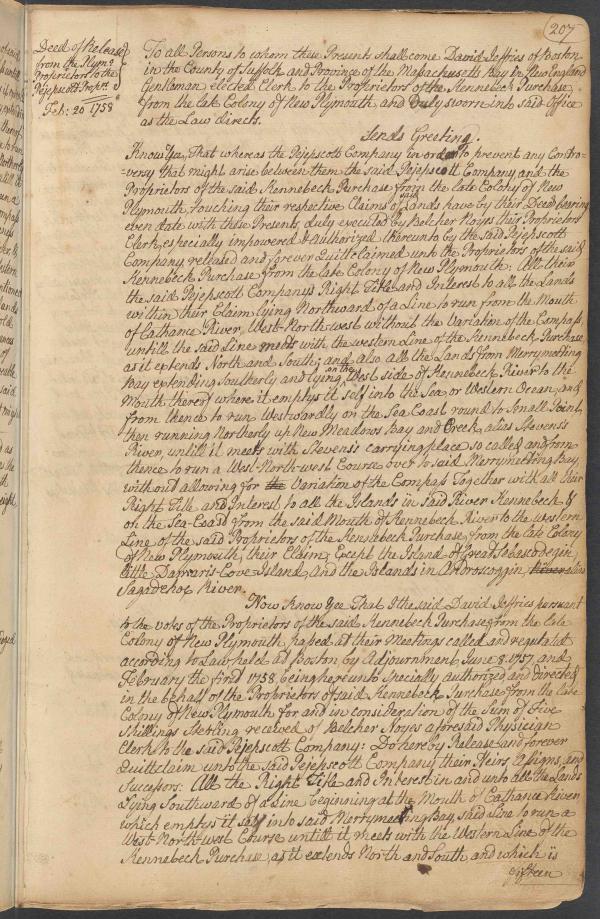 207
Deed of Release
from the Plym.o
Proprietors to the
Pejepscott Propr.s
Feb: 20 1758
To all Persons to whom these Present shall come David Jeffries of Boston
in the County of Suffolk and Province of the Massachusetts Bay in New England
Gentleman elected Clerk to the Proprietors of the Kennebeck Purchase
from the late Colony of New Plymouth and Duly sworn into said Office
as the Law directs.
Sends Greeting.
Know Yee, That whereas the Pejepscott Company in order to prevent any Contro-
-versy that might arise between them the said Pejepscott Company and the
Proprietors of the said Kennebeck Purchase from the late Colony of New
Plymouth touching their respective Claims of said Lands have by their Deed bearing
even date with these Presents, duly executed by Belcher Noyes their Proprietors
Clerk, especially impowered & authorized thereunto by the said Pejepscott
Company released and forever Quitt claimed unto the Proprietors of the said
Kennebeck Purchase from the late Colony of New Plymouth: All their
the said Pejepscott Company's Right Title and Interest to all the Lands
within their Claim lying Northward of a Line to run from the Mouth
of Cathance River, West-North-west without the Variation of the Compass,
untill the said Line meets with the western Line of the Kennebeck Purchase
as it extends North and South; and also all the Lands from Merrymeeting
Bay extending Southerly and lying on the West side of Kennebeck River to the
Mouth thereof where it emptys it self into the Sea or Western Ocean and
from thence to run Westwardly on the Sea Coast round to Small Point,
then running Northerly up New Meadows Bay and Creek alias Stevens's
River, untill it meets with Stevens's carrying place so called and from
thence to run a West-North-west Course over to said Merrymeeting Bay,
without allowing for the Variation of the Compass Together with all their
Right Title and Interest to all the Islands in said River Kennebeck &
on the Sea-Coast from the said Mouth of Kennebeck River to the western
Line of the said Proprietors of the Kennebeck Purchase from the late Colony
of New Plymouth, their Claim, Except the Island of Great Sebascodegin
little Damaris-Cove Island, and the Islands in Androscoggin River alias
Sagadehox River.
Now Know Yee That I the said David Jeffries pursuant
to the votes of the Proprietors of the said Kennebeck Purchase from the late
Colony of New Plymouth passed at their Meetings called and regulated
according to Law held at Boston by Adjournment June 8. 1757, and
February the first 1758, being hereunto specially authorized and directed
in the behalf of the Proprietors of said Kennebeck Purchase from the late
Colony of New Plymouth for and in consideration of the Sum of Five
Shillings Sterling received of Belcher Noyes aforesaid Physician
Clerk to the said Pejepscott Company: Do hereby Release and forever
Quitt claim unto the said Pejepscott Company their Heirs Assigns and
Successors. All the Right Title and Interest in and unto all the Lands
Lying Southward of a Line beginning at the Mouth of Cathance River
which emptys it self into said Merrymeeting Bay, said Line to run a
West-North-west Course untill it meets with the Western Line of the
Kennebeck Purchase as it extends North and South and which is
fifteen